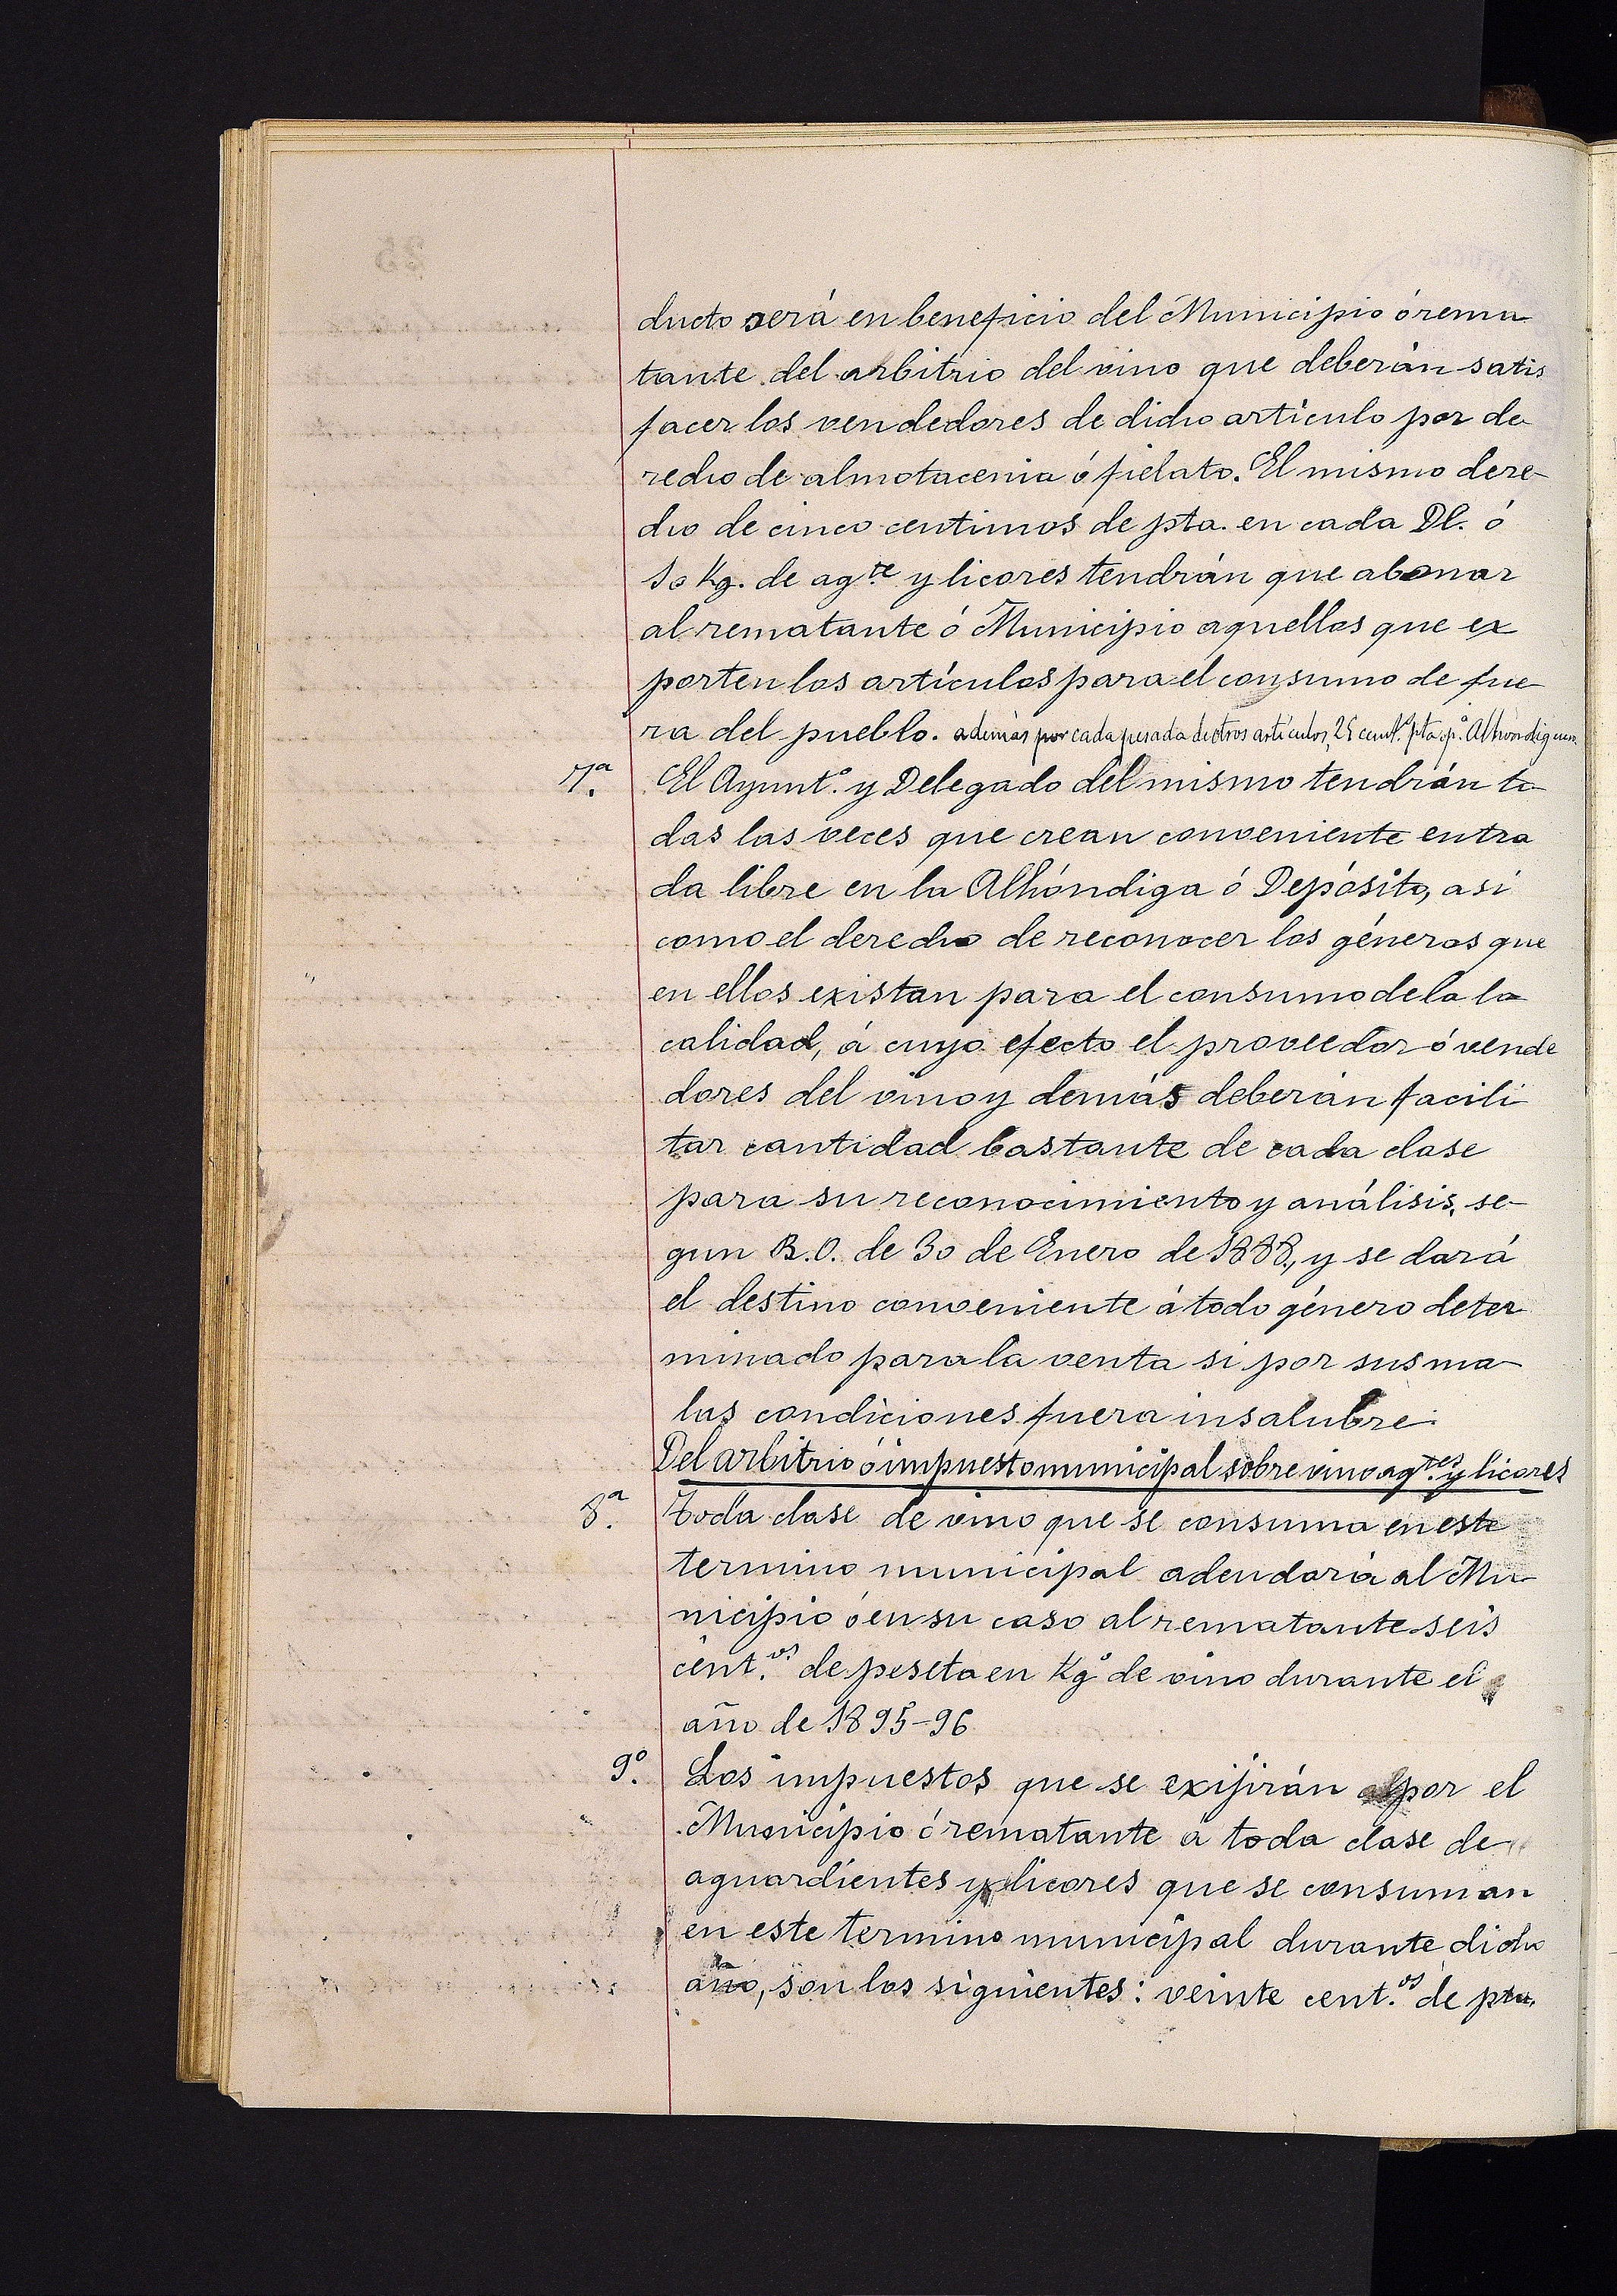 ducto será en beneficio del Municipio ó rema
tante del arbitrio del vino que deberán satis
facer los vendedores de dicho artículo por de
recho de almotacenia ó fielato. El mismo dere-
cho de cinco centimos de pta. en cada Dl. ó
10 Kg. de ag.te y licores tendrán que abonar
al rematante ó Municipio aquellos que ex
porten los artículos para el consumo de fue-
ra del pueblo. además por cada pesada de otros artículos, 25 cent.s pta. p.a Alhondiguero.
7.a El Ayunt.o y Delegado del mismo tendrán to-
das las veces que crean conveniente entra
da libre en la Alhóndiga ó Depósito, asi
como el derecho de reconocer los géneros que
en ellos existan para el consumo de la lo
calidad, á cuyo efecto el proveedor ó vende
dores del vino y demás deberán facili
tar cantidad bastante de cada clase
para su reconocimiento y análisis, se-
gun R.O. de 30 de Enero de 1888, y se dará
el destino conveniente á todo género deter
minado para la venta si por sus ma-
las condiciones fuera insalubre.
Del arbitrio ó impuesto municipal sobre vino ag.tes y licores
8.a Toda clase de vino que se consuma en este
termino municipal adeudará al Mu-
nicipio ó en su caso al rematante seis
cent.os de peseta en Kg.o de vino durante el
año de 1895-96
9.o Los impuestos que se exijirán por el
Municipio ó rematante á toda clase de
aguardientes y licores que se consuman
en este termino municipal durante dicho
año, son los siguientes: veinte cent.os de pta.